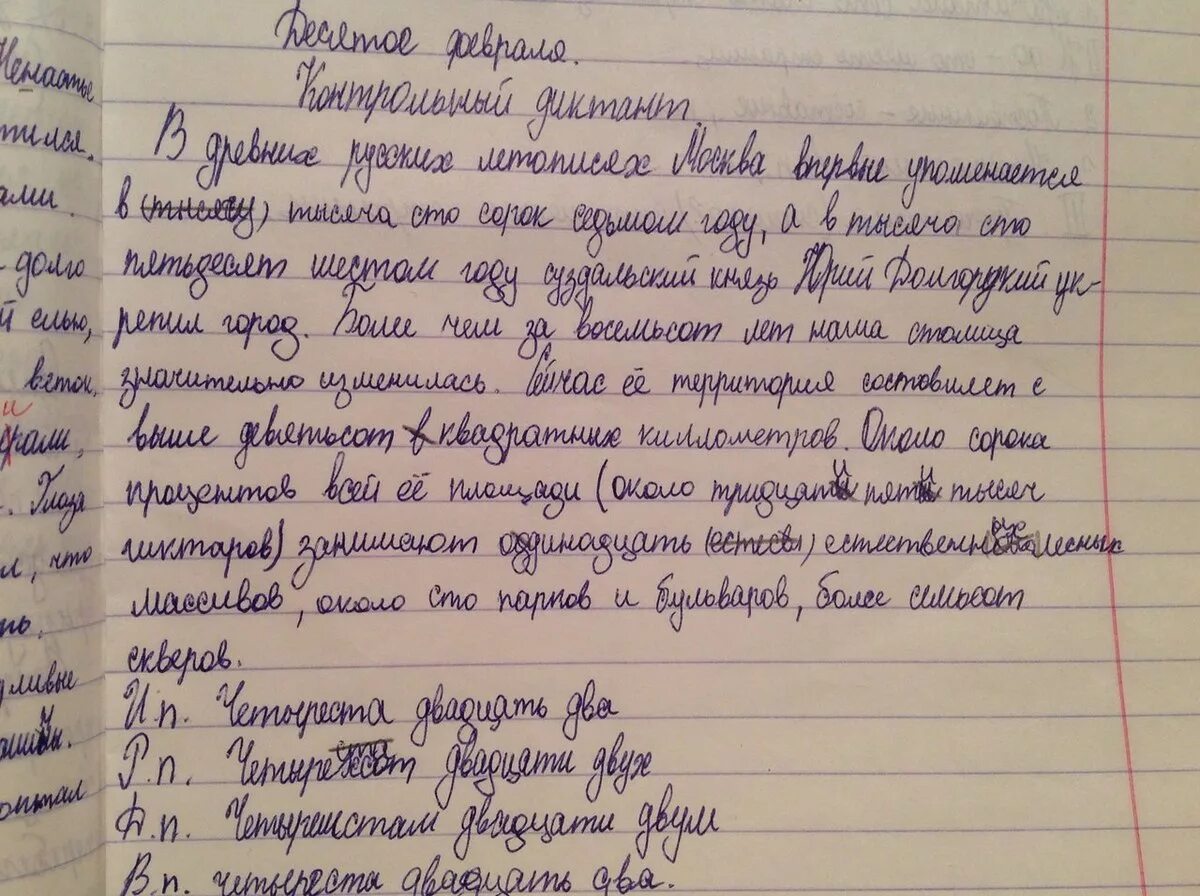 Десятое февраля.
Контрольный диктант.
В древних русских летописях Москва впервые упоменается
в (тысячу) тысяча сто сорок седьмом году, а в тысяча сто
пятьдесят шестом году суздальский князь Юрий Долгорукий ук-
репил город. Более чем за восемьсот лет наша столица
значительно изменилась. Сейчас её территория состовляет с
выше девятьсот квадратных киллометров. Около сорока
процентов всей её площади (около тридцати пяти тысяч
гиктаров) занимают одинадцать (естесвы) естественных лесных
массивов, около сто парков и бульваров, более семьсот
скверов.
И.п. Четыреста двадцать два
Р.п. Четырехсот двадцати двух
Д.п. Четыремстам двадцати двум
В.п. четыреста двадцать два.
Ненастье
тился.
ами.
долго
й елью,
веток.
рали,
. Глаза
л, что
ть.
дливые
опытал